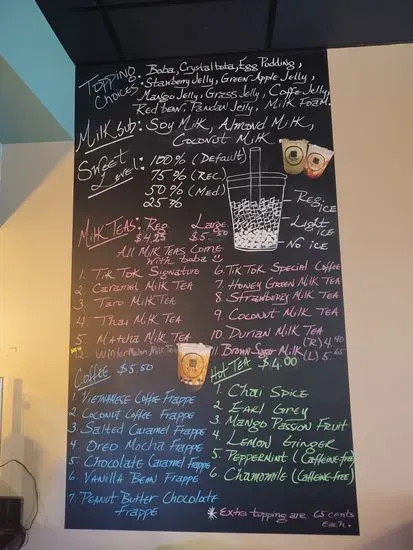 Topping Choices: Boba, Crystal boba, Egg Pudding,
Strawberry Jelly, Green Apple Jelly,
Mango Jelly, Grass Jelly, Coffe Jelly,
Red bean, Pandan Jelly, Milk Foam.
Milk Sub: Soy Milk, Almond Milk,
Coconut Milk
Sweet Level: 100% (Default)
75% (Rec.)
50% (Med)
25%
Reg ice
Light ice
No ice
Milk Teas: Reg $4.25 Large $5.50
All Milk Teas Come
with boba
1. Tik Tok Signature
2. Caramel Milk Tea
3. Taro Milk Tea
4. Thai Milk Tea
5. Matcha Milk Tea
12. Wintermelon Milk Tea
6. Tik Tok Special Coffee
7. Honey Green Milk Tea
8. Strawberry Milk Tea
9. Coconut Milk Tea
10. Durian Milk Tea
11. Brown Sugar Milk (R) 4.40 (L) 5.65
Coffee $5.50
1. Vietnamese Coffee Frappe
2. Coconut Coffee Frappe
3. Salted Caramel Frappe
4. Oreo Mocha Frappe
5. Chocolate Caramel Frappe
6. Vanilla Bean Frappe
7. Peanut Butter Chocolate
Frappe
Hot Tea $4.00
1. Chai Spice
2. Earl Grey
3. Mango Passion Fruit
4. Lemon Ginger
5. Peppermint (Caffeine-free)
6. Chamomile (Caffeine-free)
* Extra topping are 65 cents
each.